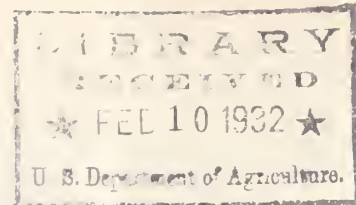 LIBRARY
RECEIVED
★ FEB 10 1932 ★
U. S. Department of Agriculture.